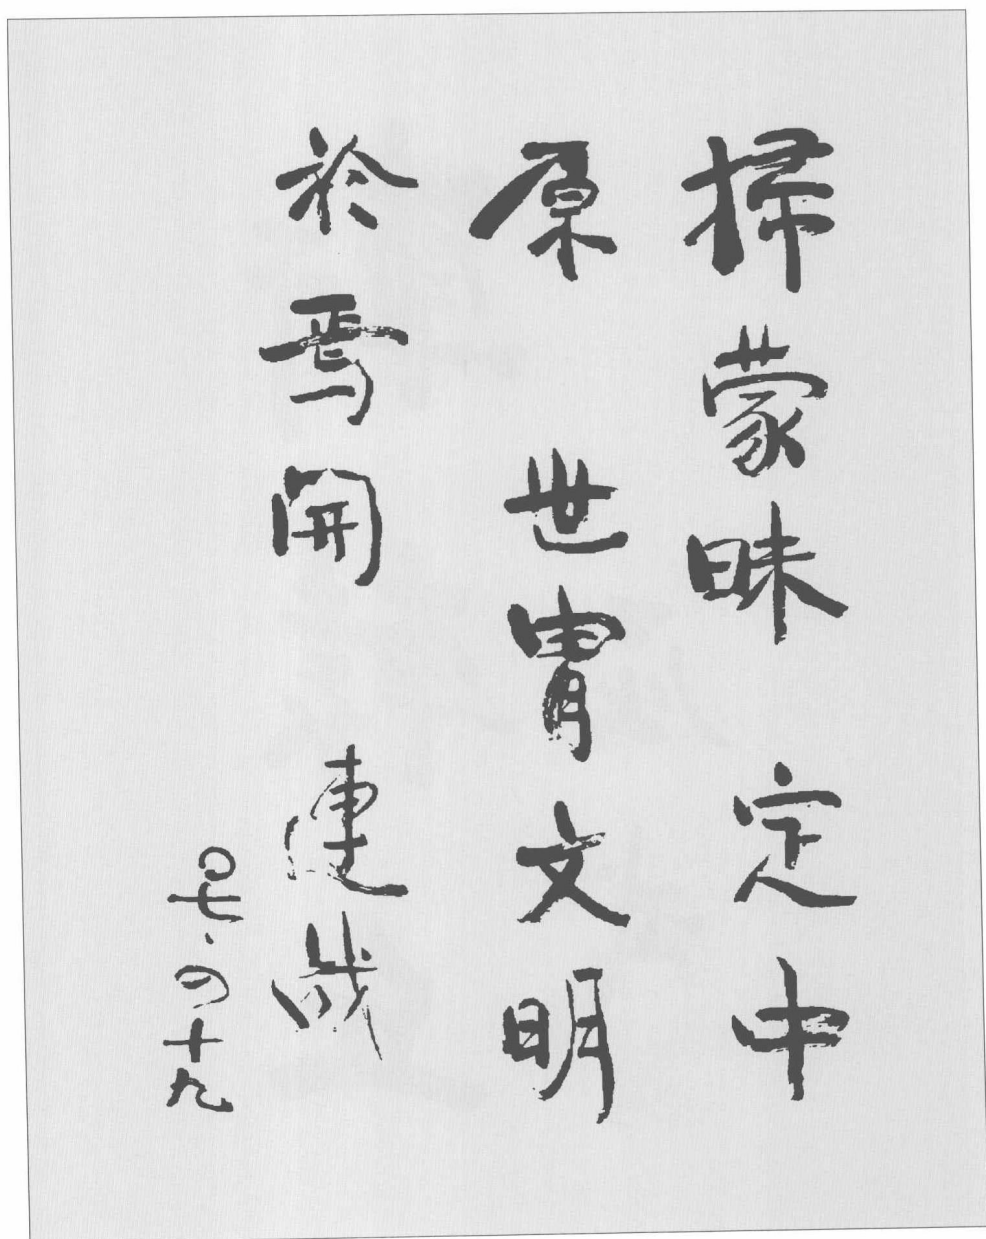 掃蒙昧 定中
原 世冑文明
於焉開 連戰
〇七·四十九